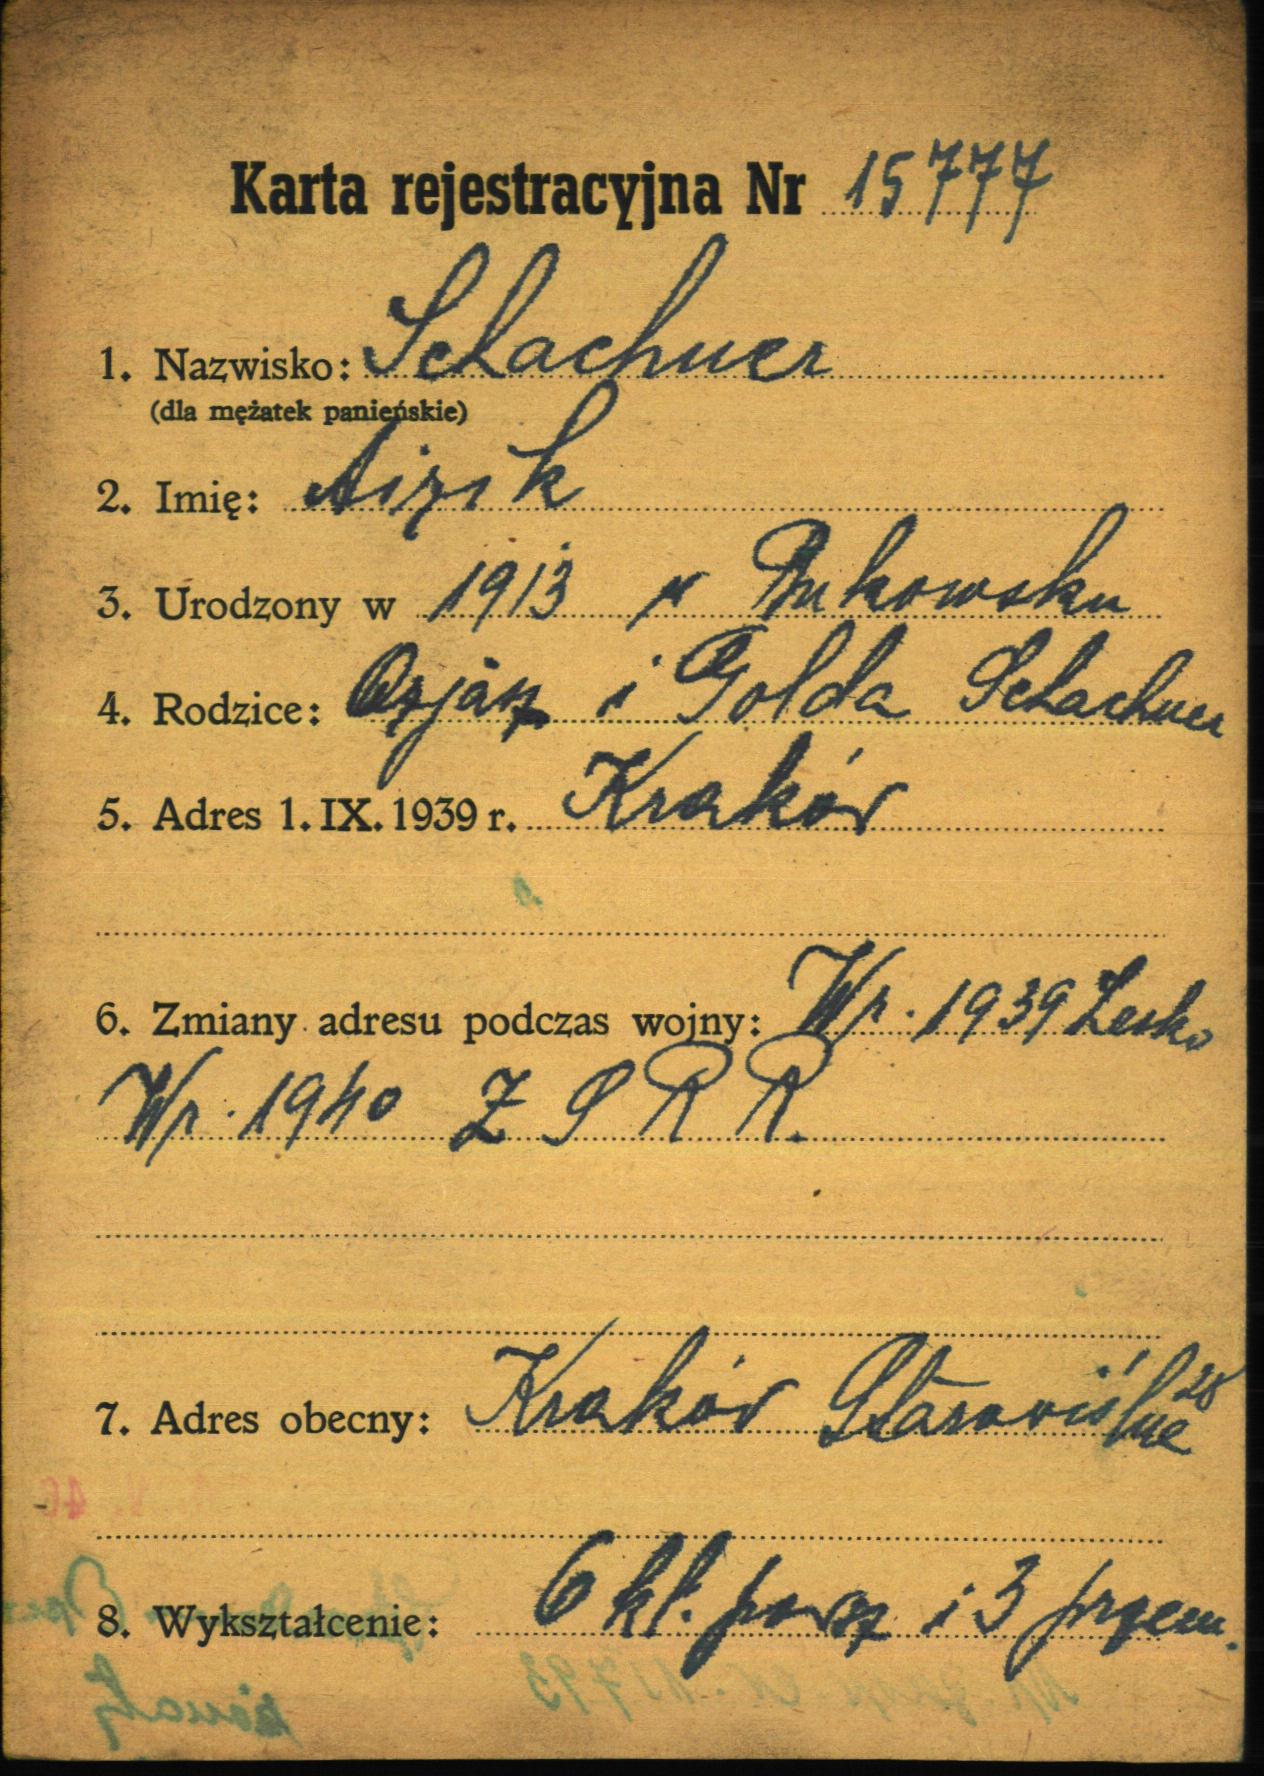 Karta rejestracyjna Nr 15777
1. Nazwisko: Schachner
(dla mężatek panieńskie)
2. Imię: Aizik
3. Urodzony w 1913 w Bukowsku
4. Rodzice: Ozjasz i Golda Schachner
5. Adres 1. IX. 1939 r. Kraków
6. Zmiany adresu podczas wojny: Wr. 1939 Lesko
Wr. 1940 Z S R R.
7. Adres obecny: Kraków Starowiślna 28
8. Wykształcenie: 6 kl. powsz i 3 przem.